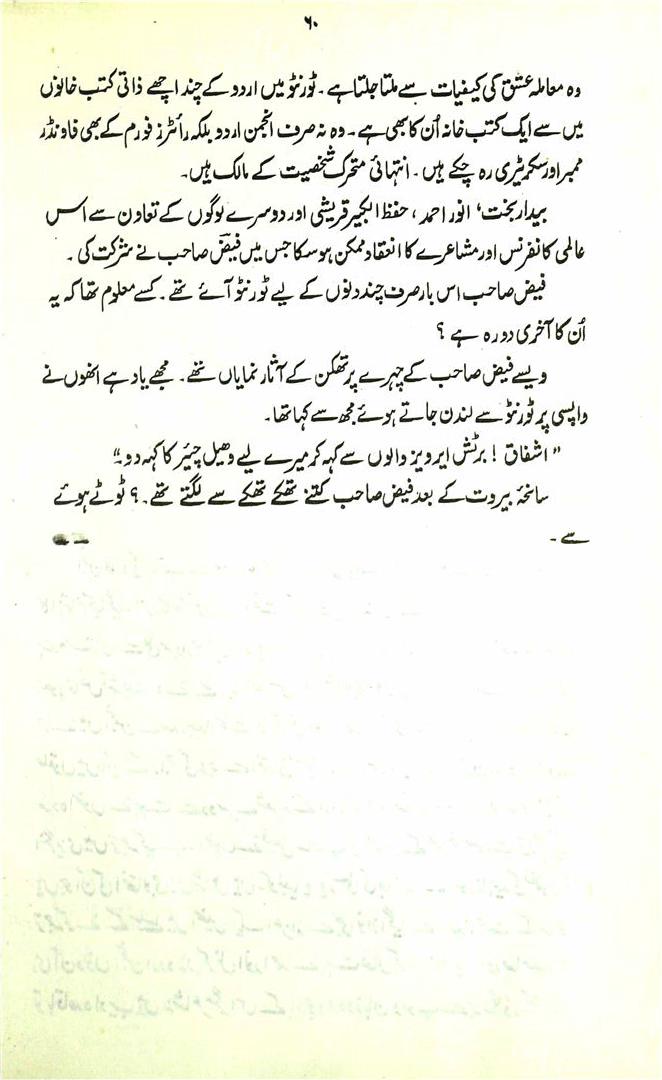 ۶۰
وہ معاملہ عشق کی کیفیات سے ملتا جلتا ہے۔ ٹورنٹو میں اردو کے چند اچھے ذاتی کتب خانوں
میں سے ایک کتب خانہ اُن کا بھی ہے۔ وہ نہ صرف انجمن اردو بلکہ رائٹرز فورم کے بھی فاونڈر
ممبر اور سکریٹری رہ چکے ہیں۔ انتہائی متحرک شخصیت کے مالک ہیں۔
بیدار بخت، انور احمد، حفظ الکبیر قریشی اور دوسرے لوگوں کے تعاون سے اس
عالمی کانفرنس اور مشاعرے کا انعقاد ممکن ہو سکا جس میں فیض صاحب نے شرکت کی۔
فیض صاحب اس بار صرف چند دنوں کے لیے ٹورنٹو آئے تھے۔ کسے معلوم تھا کہ یہ
اُن کا آخری دورہ ہے ؟
ویسے فیض صاحب کے چہرے پر تھکن کے آثار نمایاں تھے۔ مجھے یاد ہے انھوں نے
واپسی پر ٹورنٹو سے لندن جاتے ہوئے مجھ سے کہا تھا۔
"اشفاق ! برٹش ایرویز والوں سے کہہ کر میرے لیے وھیل چیئر کا کہہ دو۔"
سانحۂ بیروت کے بعد فیض صاحب کتنے تھکے تھکے سے لگتے تھے۔؟ ٹوٹے ہوئے
سے۔